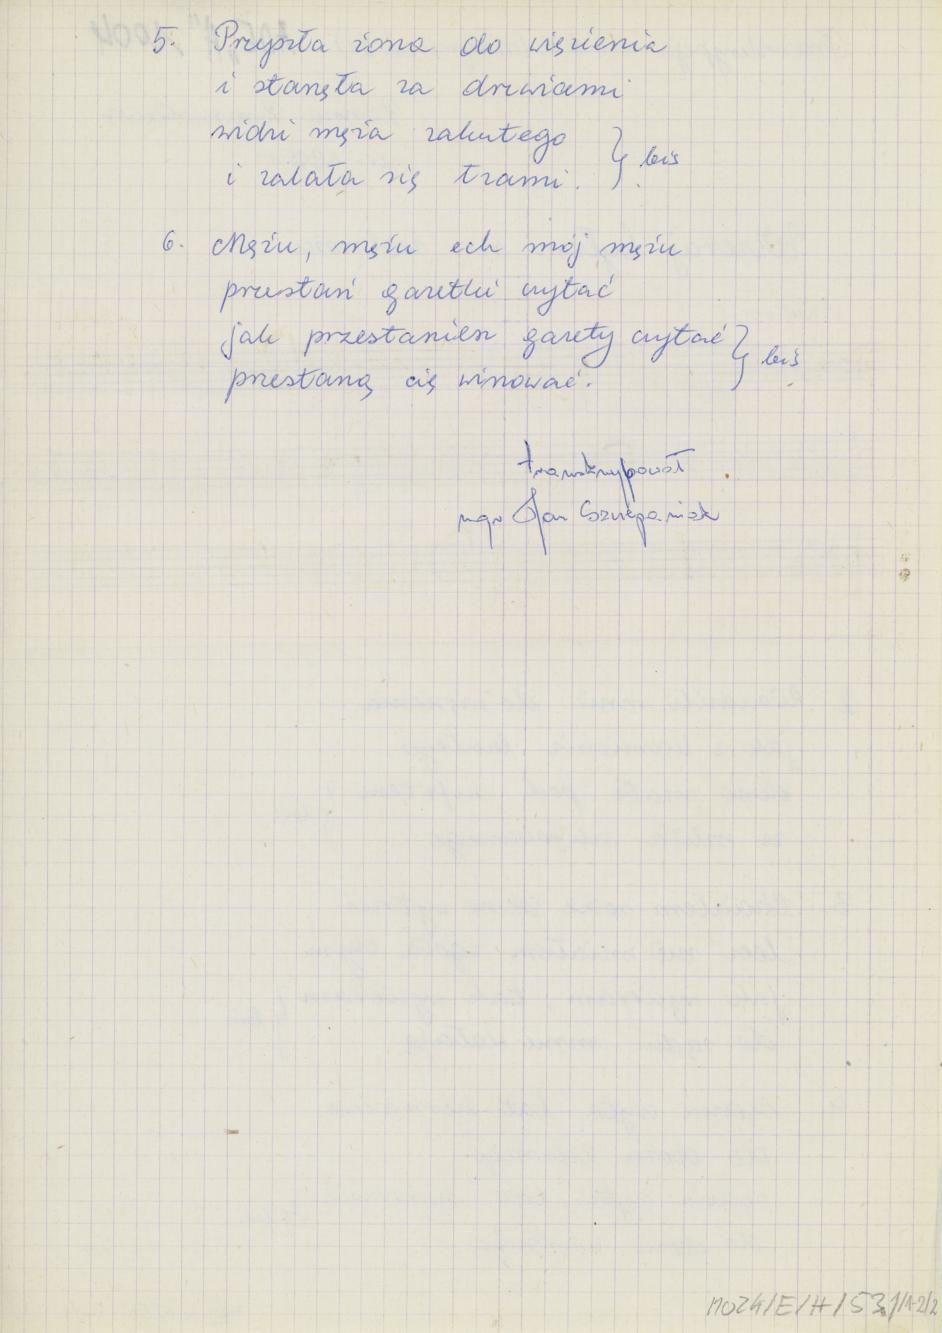 5. Przyszła żona do więzienia
i stanęła za drzwiami
widzi męża zakutego
i zalała się łzami. } bis
6. Mężu, mężu ech mój mężu
przestań gazetki czytać
jak przestaniesz gazety czytać
przestaną cię winować. } bis
transkrybował
mgr Jan Szczepaniak
MOZK/E/H/531/1-2/2